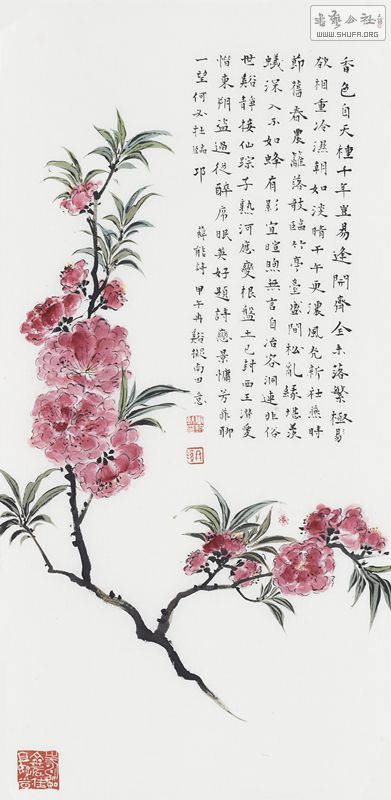 書藝公社
WWW.SHUFA.ORG
香色自天種千年豈易逢開齊全未落繁極易
欲相重冷濕朝如淡晴干午更濃風光新社燕時
節舊春農籬落敧臨竹亭臺盛間松亂緣堪羨
蟻深入不如蜂有影宜暄煦無言自冶容洞連非俗
世谿靜接仙踪子熟河應變根盤土已封西王潛愛
惜東朔盜過從醉席眠英好題詩戀景慵芳菲聊
一望何必在臨邛
薛能詩 甲午冉谿擬南田意